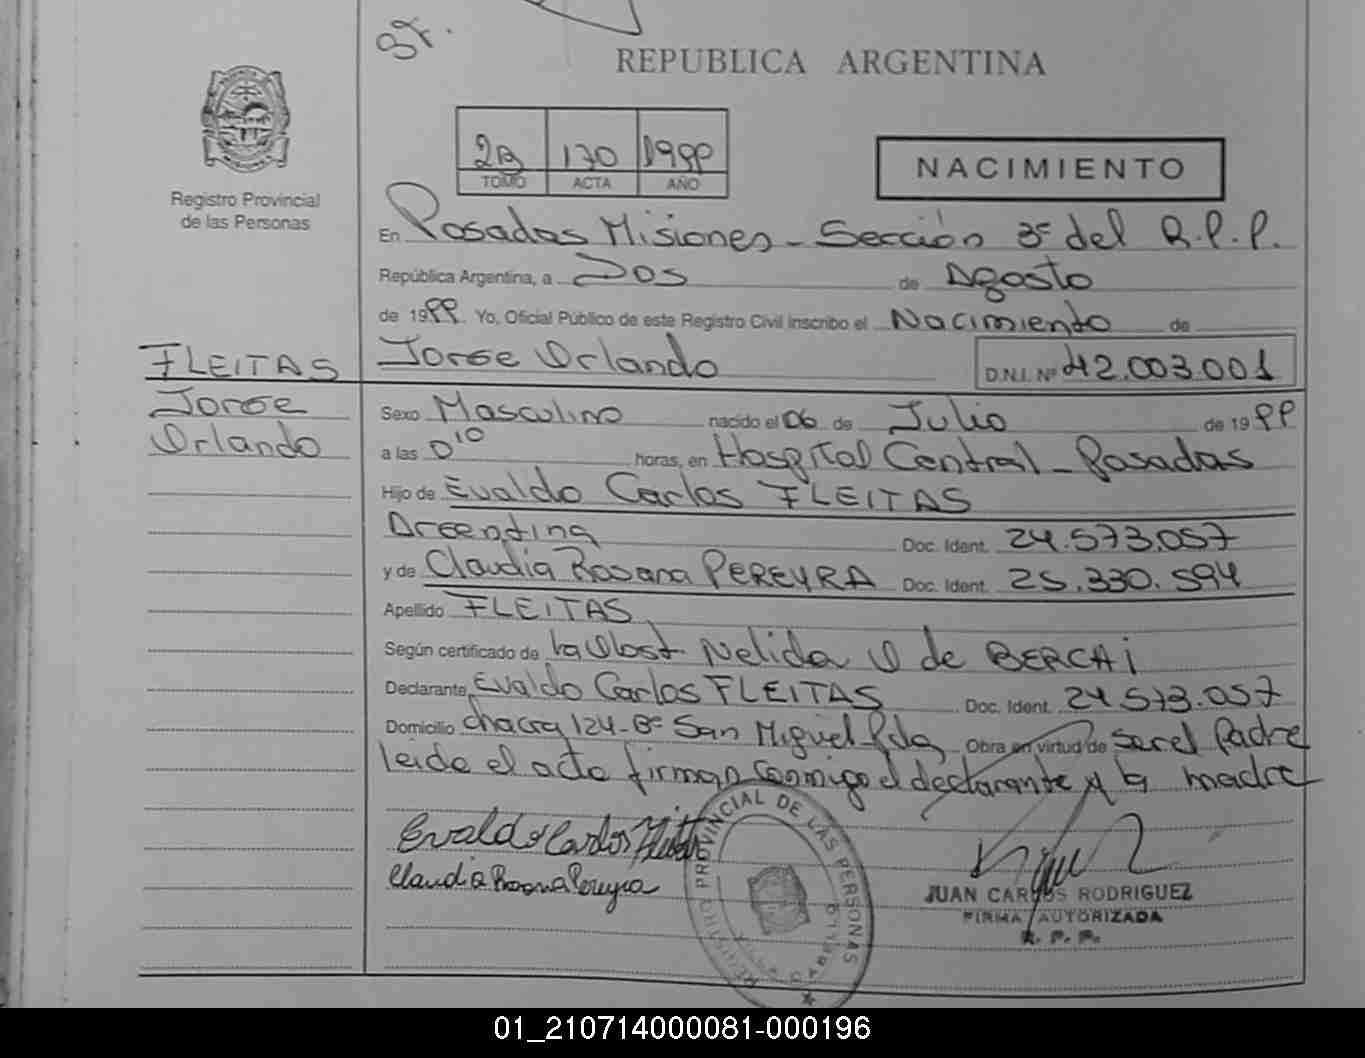 REPUBLICA ARGENTINA
Registro Provincial
de las Personas
2B 170 1999
TOMO ACTA AÑO
NACIMIENTO
En Posadas Misiones - Sección 3ª del R.P.P.
República Argentina, a Dos de Agosto
de 1999 Yo, Oficial Público de este Registro Civil inscribo el Nacimiento de
FLEITAS
Jorge
Orlando
Jorge Orlando D.N.I. Nº 42.003.001
Sexo Masculino nacido el 06 de Julio de 1999
a las 0 10 horas, en Hospital Central - Posadas
Hijo de Evaldo Carlos FLEITAS
Argentina Doc. Ident. 24.573.057
y de Claudia Rosana PEREYRA Doc. Ident. 25.330.594
Apellido FLEITAS
Según certificado de la Obst. Nelida O de BERGAi
Declarante Evaldo Carlos FLEITAS Doc. Ident. 24.573.057
Domicilio chacra 124-Bº San Miguel-Pdas Obra en virtud de ser el Padre
leída el acta firman conmigo el declarante y la madre
Evaldo Carlos
Claudia Rosana Pereyra
PROVINCIAL DE LAS PERSONAS
JUAN CARLOS RODRIGUEZ
FIRMA AUTORIZADA
R. P. P.
01_210714000081-000196